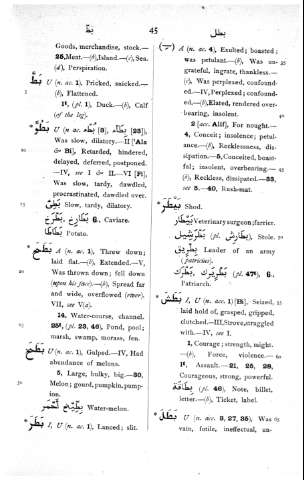 بضّ
45
بطل
Goods, merchandise, stock.—
25, Ment.—(b), Island.—(c), Sea.
(d), Perspiration.
بَطَّ U (n. ac. 1), Pricked, snicked.—
(b), Flattened.
1t, (pl. 1), Duck.—(b), Calf
(of the leg).
Was slow, dilatory.—II [Ala
& Bi], Retarded, hindered,
delayed, deferred, postponed.
—IV, see I & II.—VI [Fi],
Was slow, tardy, dawdled,
procrastinated, dawdled over.
Slow, tardy, dilatory.
6, Caviare.
بَطَاطَا Potato.
بَطَحَ A (n. ac. 1), Threw down;
laid flat.—(b), Extended.—V,
Was thrown down; fell down
(upon his face).—(b), Spread far
and wide, overflowed (river).
VII, see V(a).
14, Water-course, channel.
25t, (pl. 23, 46), Pond, pool;
marsh, swamp, morass, fen.
(n. ac. 1), Gulped.—IV, Had
abundance of melons.
5, Large, bulky, big.—30,
Melon; gourd, pumpkin, pump-
ion.
بَطِّيخ أَحْمَر Water-melon.
بَطَرَ I, U (n. ac. 1), Lanced; slit.
A (n. ac. 4), Exulted; boasted;
was petulant.—(b), Was un-
grateful, ingrate, thankless.—
(c), Was perplexed, confound-
ed.—IV, Perplexed; confound-
ed,—(b), Elated, rendered over-
bearing, insolent.
2 [acc. Alif], For nought.—
4, Conceit; insolence; petul-
ance.—(b), Recklessness, dis-
sipation.—5, Conceited, boast-
ful; insolent, overbearing.—
(b), Reckless, dissipated.—33,
see 5.—40, Rock-mat.
بَيْطَرَ Shod.
بَيْطَار Veterinary surgeon; farrier.
Stole.
بِطْرِيق Leader of an army
(patricius).
(pl. 47t), 6,
Patriarch.
بَطَشَ I, U (n. ac. 1) [Bi], Seized,
laid hold of, grasped, gripped,
clutched.—III, Strove, struggled
with.—IV, see I.
1, Courage; strength, might.
—(b), Force, violence.—
1t, Assault.—21, 25, 28,
Courageous, strong, powerful.
بِطَاقَة (pl. 46), Note, billet,
letter.—(b), Ticket, label.
بَطَلَ U (n. acc. 3, 27, 35), Was
vain, futile, ineffectual, un-